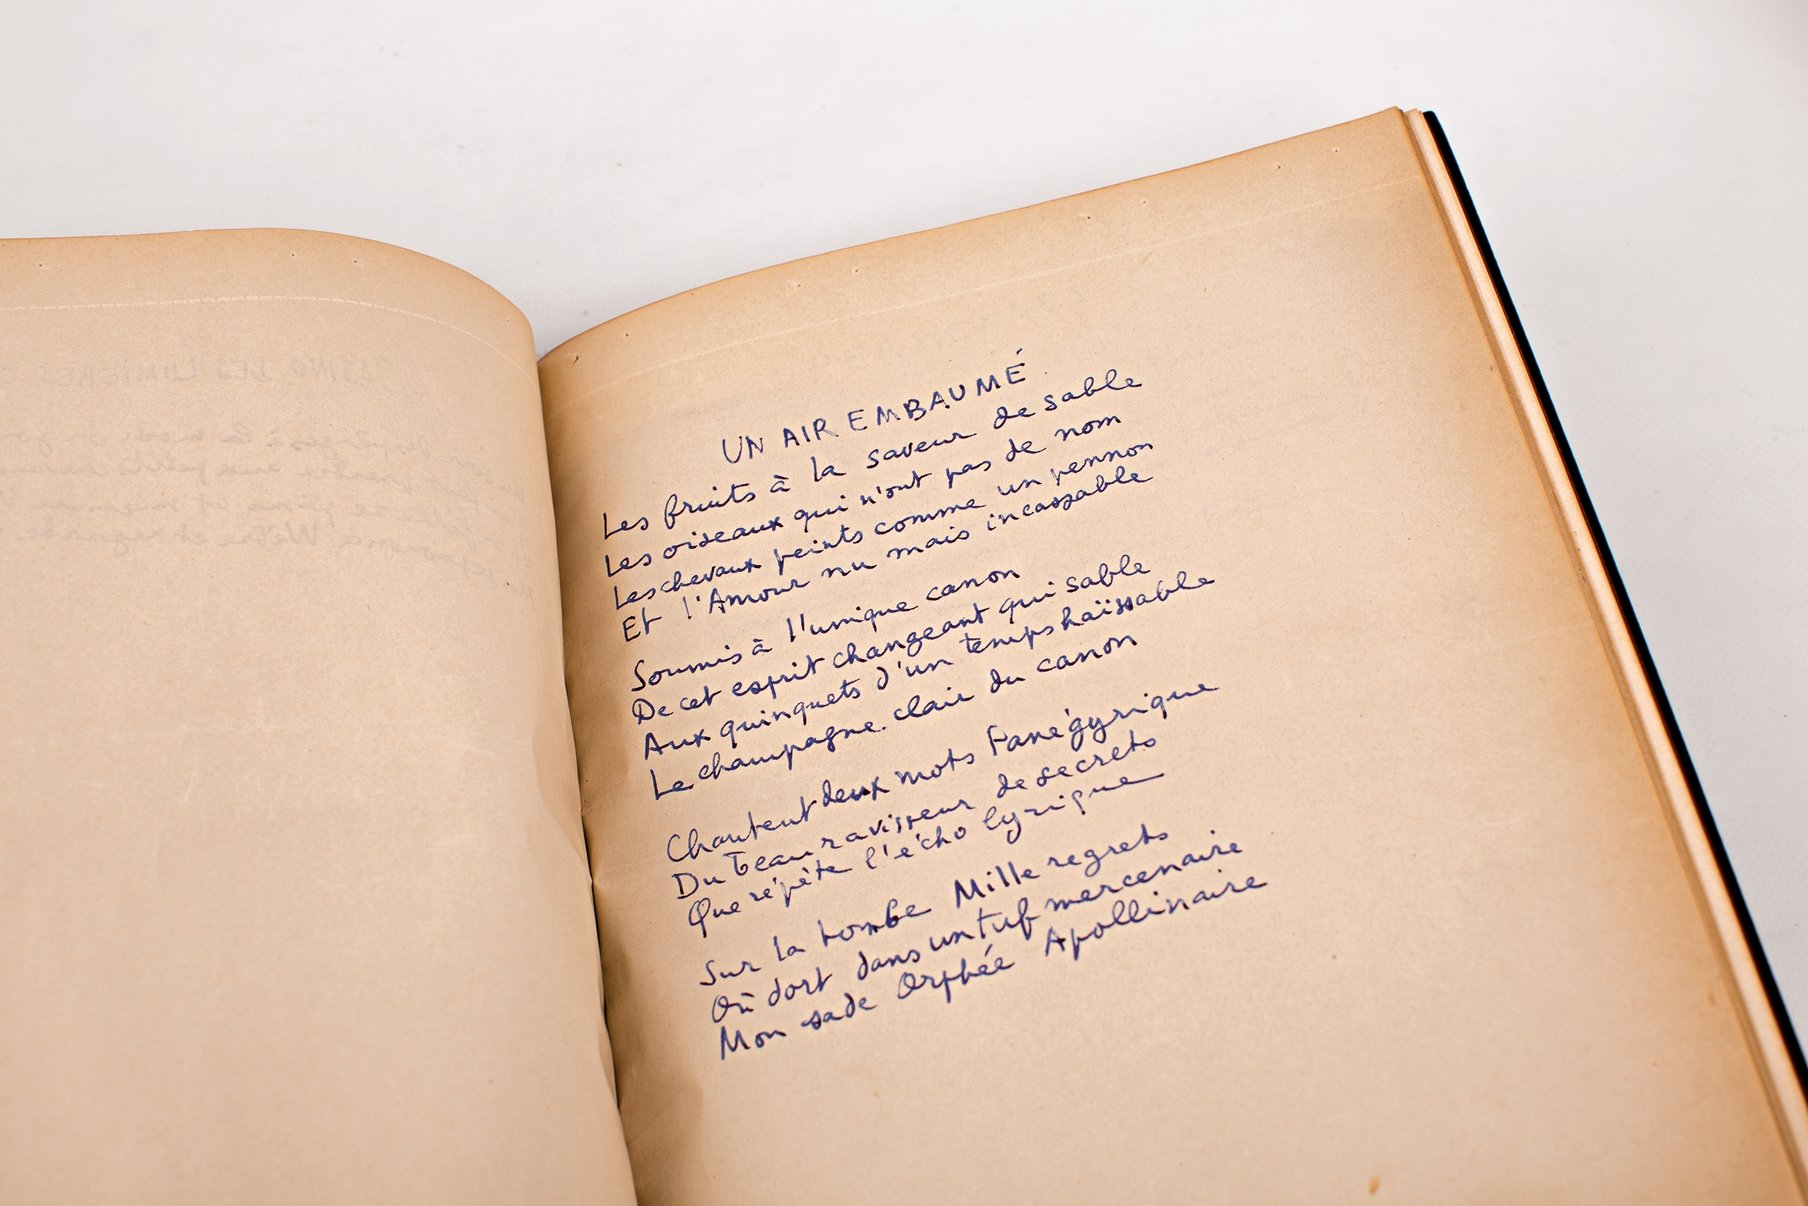 UN AIR EMBAUMÉ
Les fruits à la saveur de sable
Les oiseaux qui n'ont pas de nom
Les chevaux peints comme un pennon
Et l'Amour nu mais incassable
Soumis à l'unique canon
De cet esprit changeant qui sable
Aux quinquets d'un temps haïssable
Le champagne clair du canon
Chantent deux mots Panégyrique
Du beau ravisseur de secrets
Que répète l'écho lyrique
Sur la tombe Mille regrets
Où dort dans un tuf mercenaire
Mon sade Orphée Apollinaire